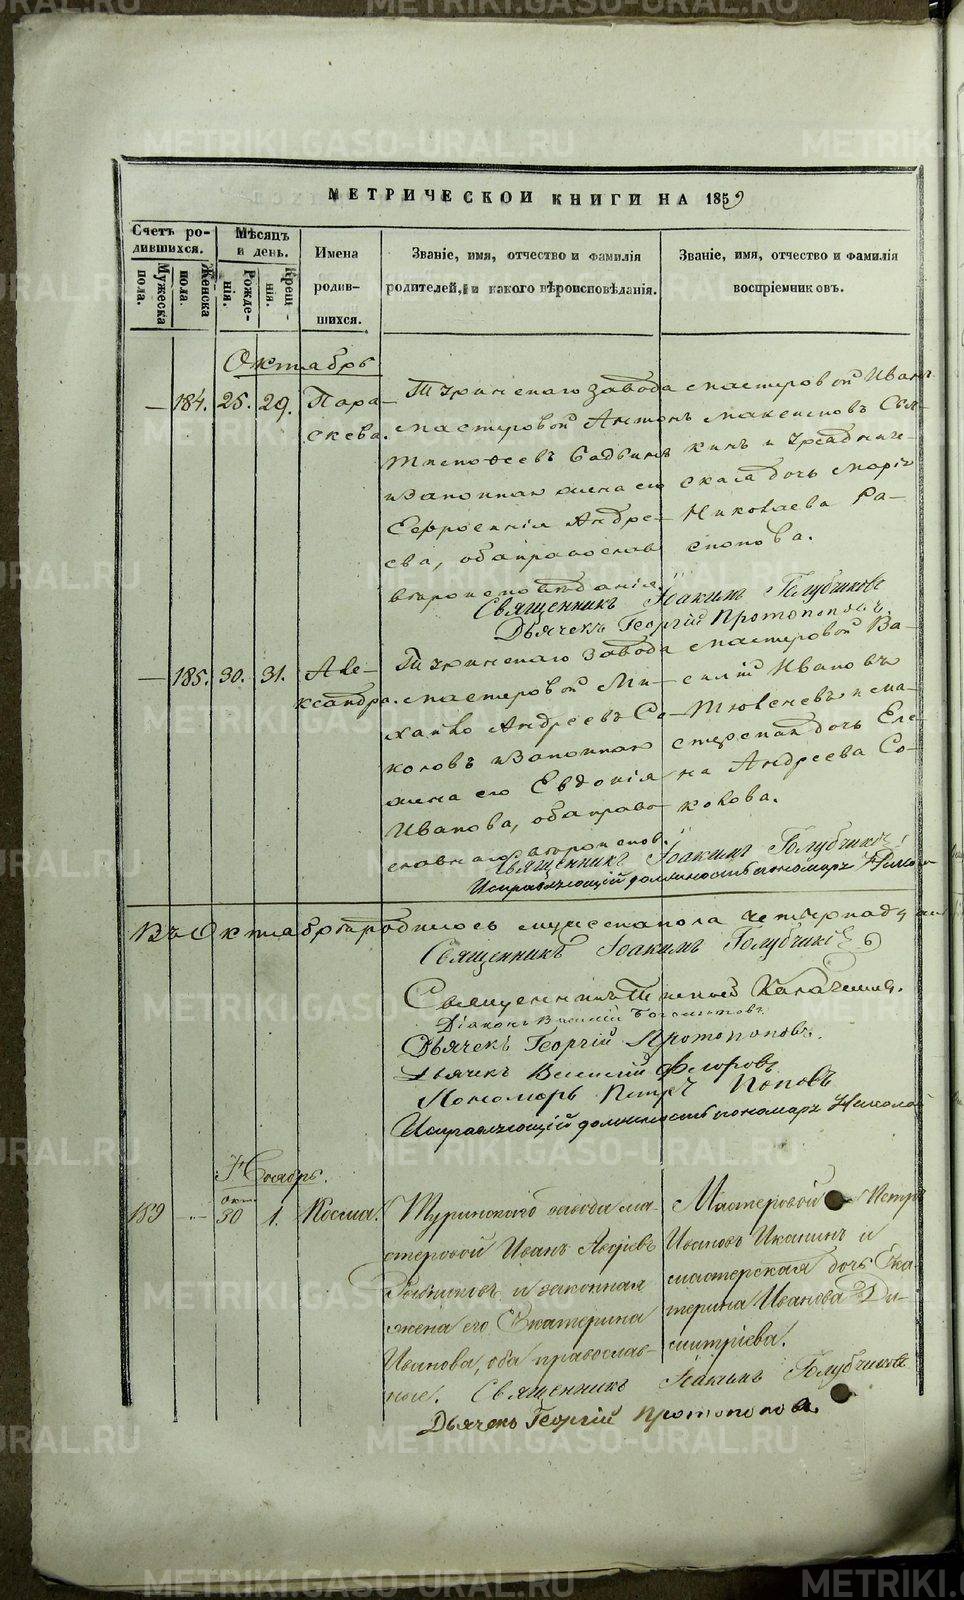 МЕТРИЧЕСКОЙ КНИГИ НА 1859
Счетъ родившихся.
Мужеска пола.
Женска пола.
Мѣсяцъ и день.
Рожденія.
Крещенія.
Имена родившихся.
Званіе, имя, отчество и фамилія родителей, и какого вѣроисповѣданія.
Званіе, имя, отчество и фамилія воспріемниковъ.
Октябрь
— 184. 25. 29. Параскева.
Туринскаго завода
мастеровой Антонъ
Тимофеевъ
и законная жена его
Евфросинія Андре-
ева, оба православ
вѣроисповѣданія.
мастеровой Иванъ
Максимовъ
кинъ и
ская дочь Марія
Николаева Ра-
спопова.
Священникъ Іоакимъ Голубчиковъ
Дьячекъ Георгій Протопоповъ.
— 185. 30. 31. Александра.
Туринскаго завода
мастеровой Ми-
хайло Андреевъ Со-
коловъ и законная
жена его Евдокія
Иванова, оба право-
славнаго вѣроиспов.
мастеровой Ва-
силій Ивановъ
и ма-
стерская дочь Еле-
на Андреева Со-
колова.
Священникъ Іоакимъ Голубчиковъ
Исправляющій должность пономаря
Въ Октябрѣ родилось мужеска пола четырнадцать
Священникъ Іоакимъ Голубчиковъ
Священникъ Калачевъ
Діаконъ
Дьячекъ Георгій Протопоповъ.
Дьячекъ Василій Федоровъ
Пономарь Петръ Поповъ
Исправляющій должность пономаря Николай
Ноябрь.
189 — окт. 30 1. Косма.
Туринскаго завода ма-
стеровой Иванъ
и законная
жена его Екатерина
Иванова, оба православ-
ные.
Мастеровой Петръ
Ивановъ Иканинъ и
мастерская дочь Ека-
терина Иванова Ди-
митріева.
Священникъ Іоакимъ Голубчиковъ
Дьячекъ Георгій Протопоповъ.
METRIKI.GASO-URAL.RU